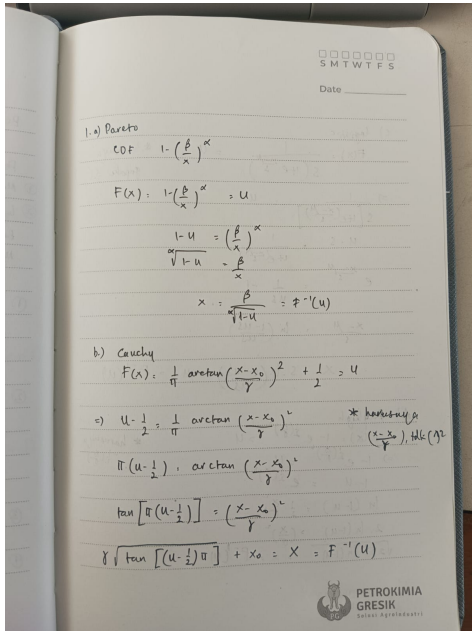 S M T W T F S
Date
1. a) Pareto
CDF 1-(β/x)^α
F(x) = 1-(β/x)^α = u
1-u = (β/x)^α
α√(1-u) = β/x
x = β/α√(1-u) = F⁻¹(u)
b.) Cauchy
F(x) = 1/π arctan(x-x₀/γ)² + 1/2 = u
=) u-1/2 = 1/π arctan(x-x₀/γ)²
* harusnya
(x-x₀/γ), tdk ( )²
π(u-1/2) = arctan(x-x₀/γ)²
tan[π(u-1/2)] = (x-x₀/γ)²
γ√tan[(u-1/2)π] + x₀ = x = F⁻¹(u)
PETROKIMIA
GRESIK
Solusi Agroindustri